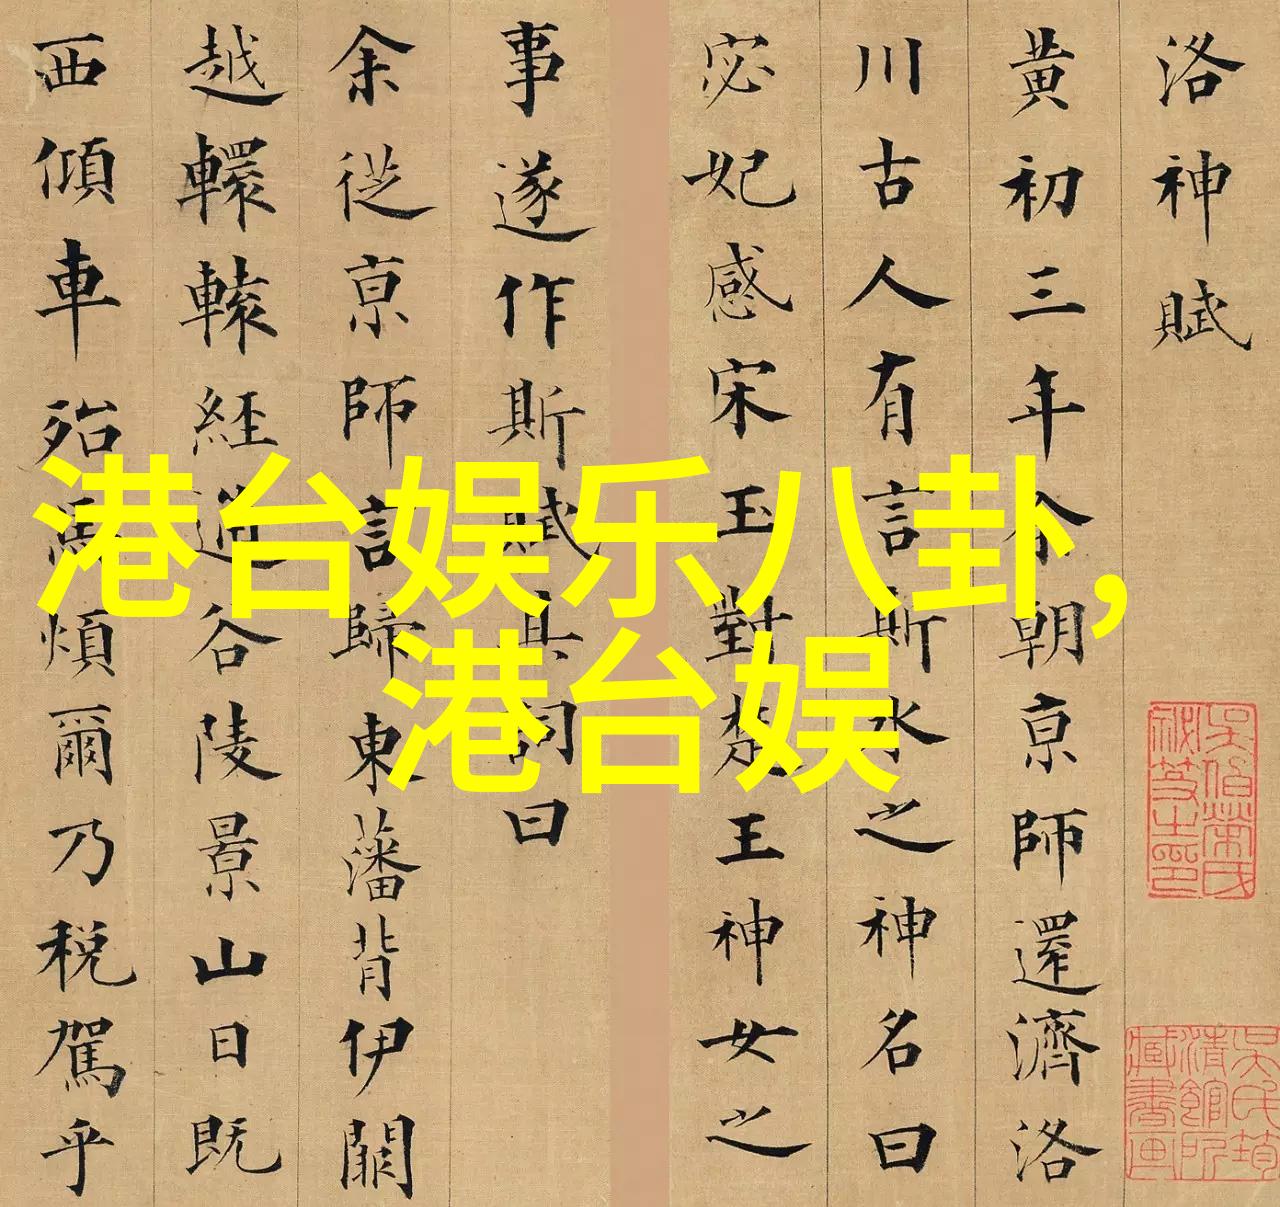 港台娱乐八卦，
港台娱
洛神賦
黄初三年余朝京師還濟洛
川古人有言斯水之神名曰
宓妃感宋玉對楚王神女之
事遂作斯賦其詞曰
余從京師言歸東藩背伊闕
越轘轅經通谷陵景山日既
西傾車殆馬煩爾乃稅駕乎